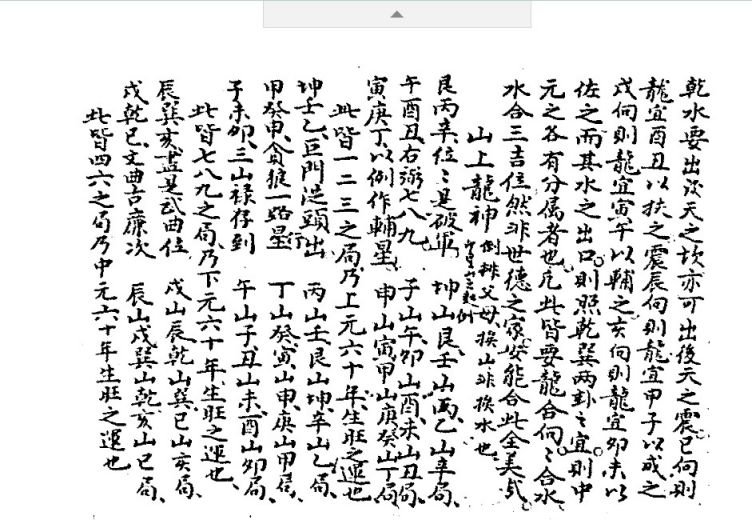 乾水要出後天之坎亦可出後天之震巳向則
龍宜酉丑以扶之震辰向則龍宜甲子以成之
戌向則龍宜寅午以輔之亥向則龍宜卯未以
佐之而其水之出口則照乾巽兩卦之宜則中
元之各有分属者也凡此皆要龍合向〻合水
水合三吉位然非世德之家安能合此全美哉
山上龍神 倒排父母挨山非挨水也
艮丙辛位〻是破軍 坤山艮壬山丙乙山辛局
午酉丑右弼七八九 子山午卯山酉未山丑局
寅庚丁以例作輔星 申山寅甲山庚癸山丁局
此皆一二三之局乃上元六十年生旺之運也
坤壬乙巨門從頭出 丙山壬艮山坤辛山乙局
甲癸申貪狼一路星 丁山癸寅山申庚山甲局
子未卯三山禄存到 午山子丑山未酉山卯局
此皆七八九之局乃下元六十年生旺之運也
辰巽亥盡是武曲位 戌山辰乾山巽巳山亥局
戌乾巳文曲古廉次 辰山戌巽山乾亥山巳局
此皆四六之局乃中元六十年生旺之運也